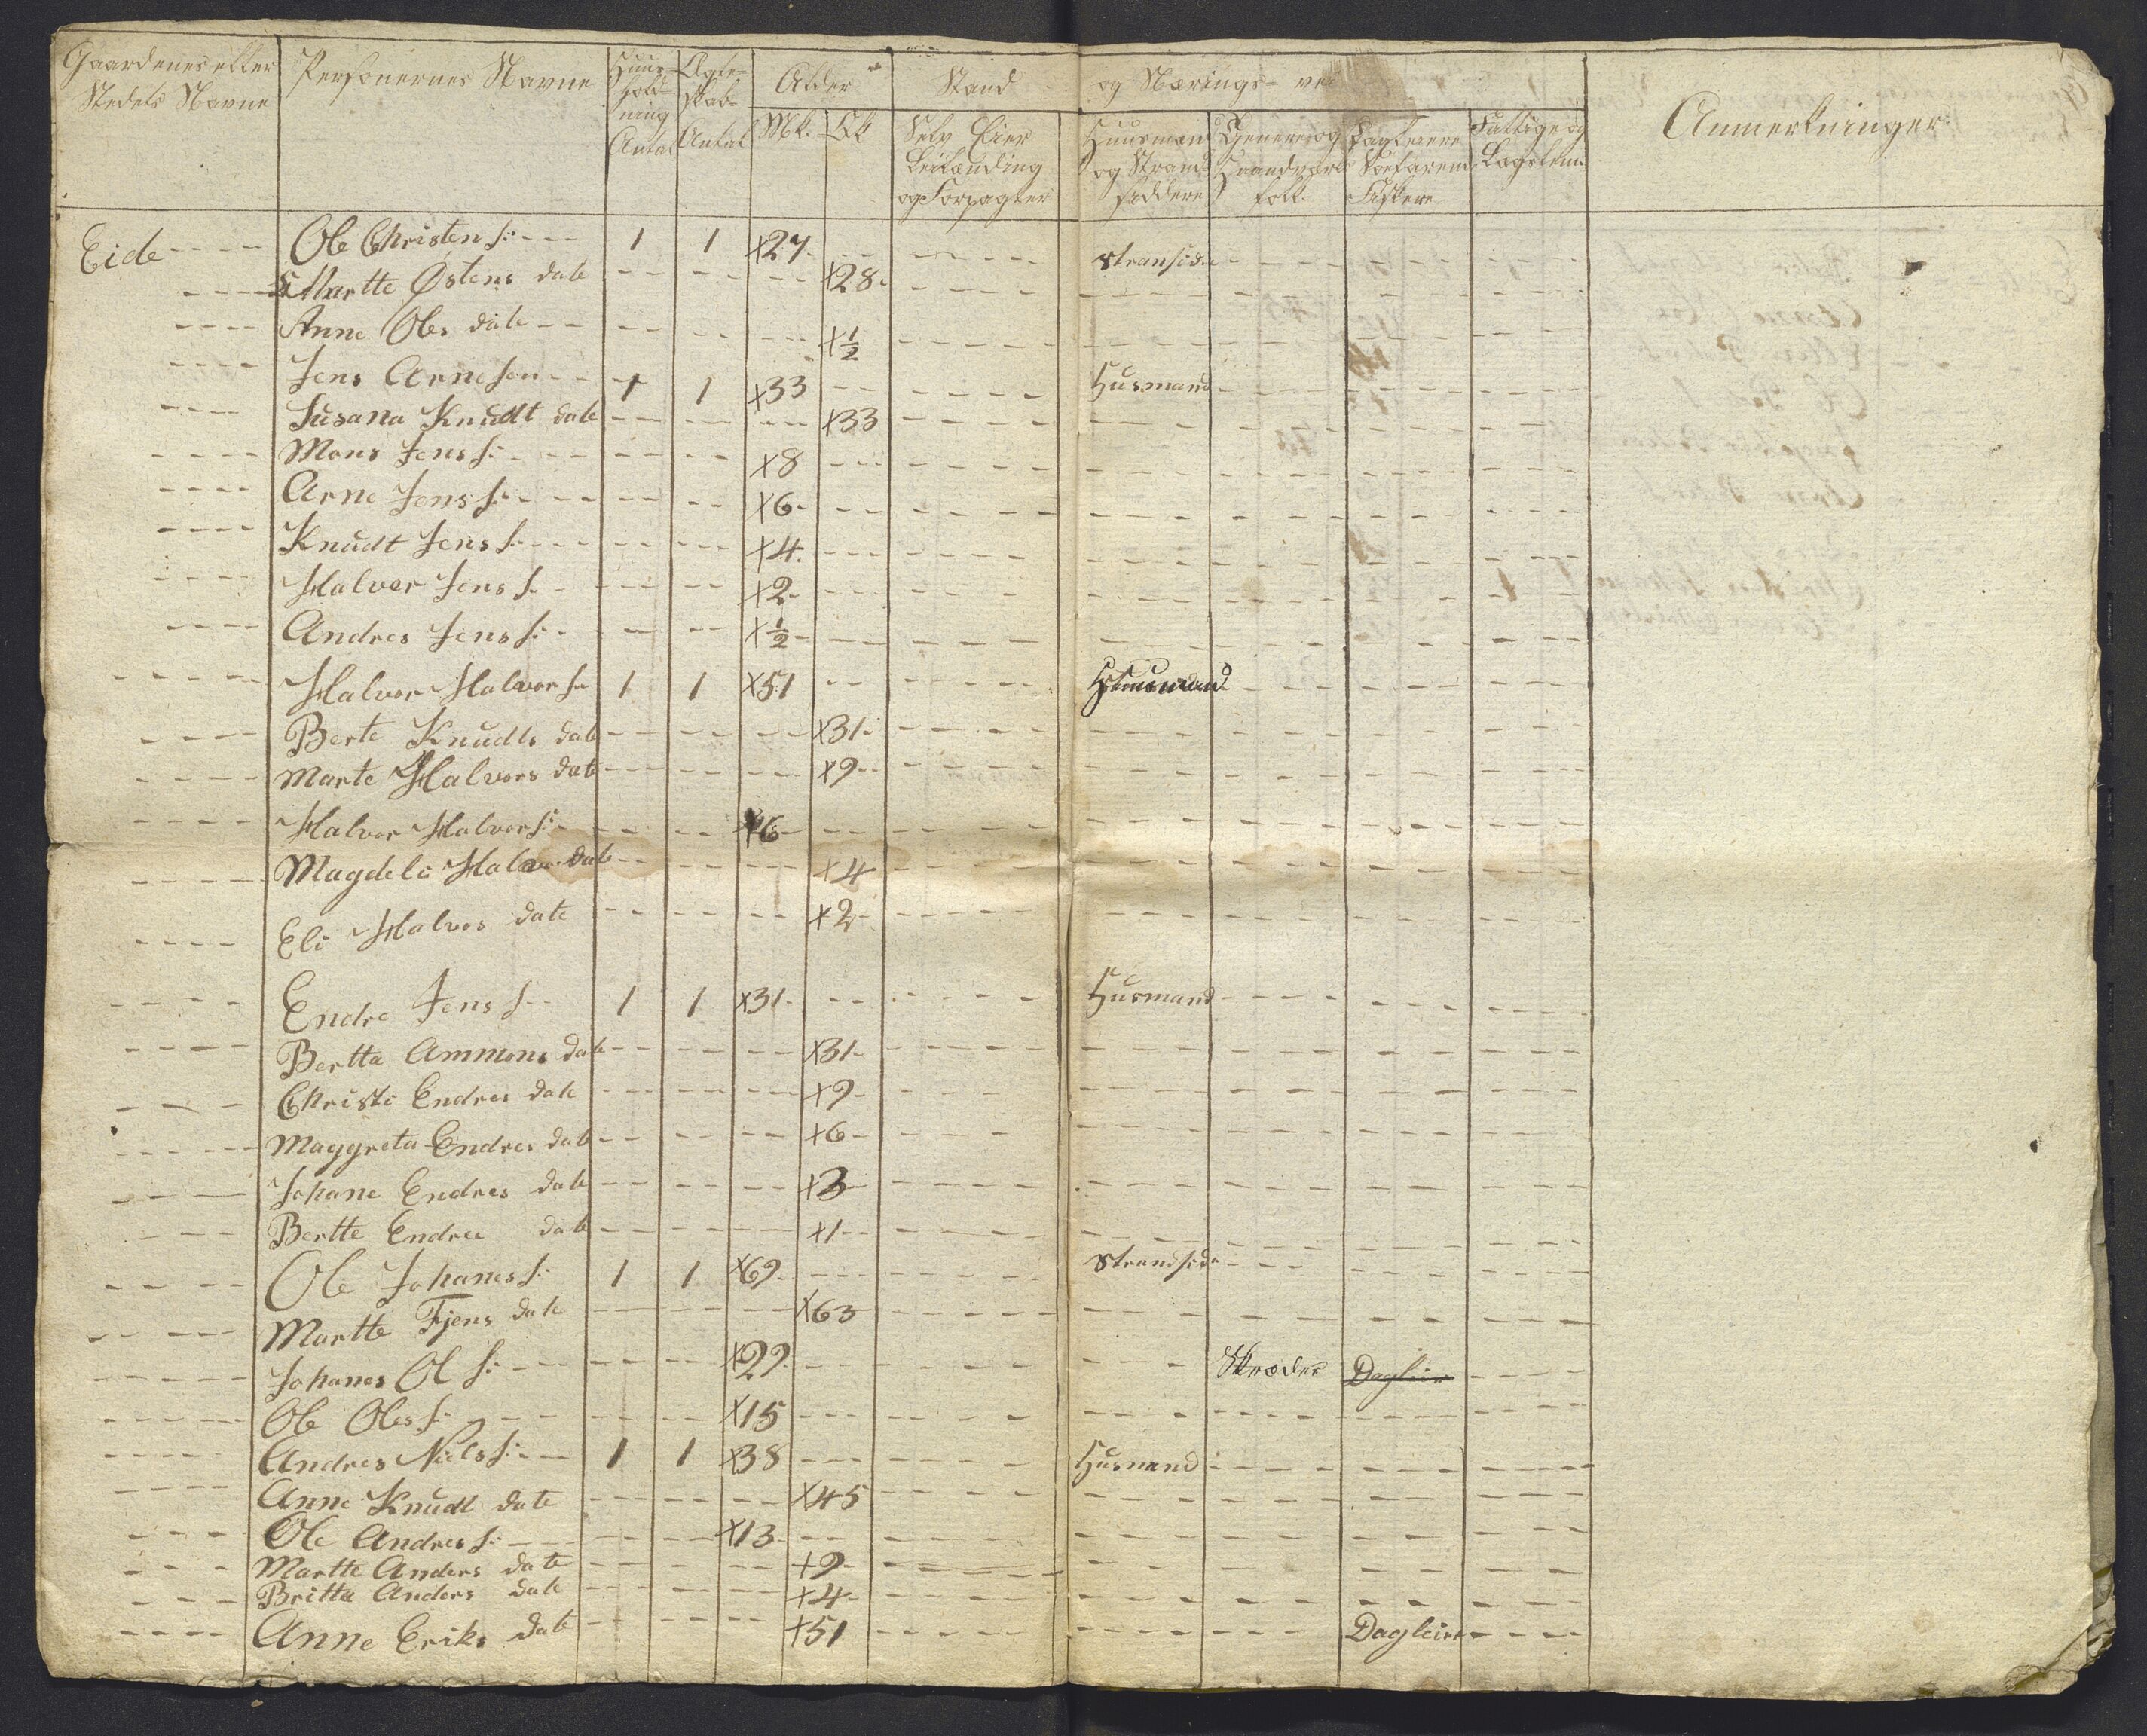 Gaardenes eller Stedets Navne Personernes Navne Huus-holdning Antal Ægteskab Antal Alder Mk. Qk Stand og Nærings-vei Selv Eier Leilænding og Forpagter Huusmænd og Strandsiddere Tjenere og Haandværksfolk Fattige og Anmerkninger
Eide Ole Christens s: 1 1 x27 Stransid
Martte Østens date x28
Anne Oles date x½
Jens Arneson 1 1 x33 Husmand
Susana Knudt date x33
Mons Jens s: x8
Arne Jens s: x6
Knudt Jens s: x4
Halver Jens s: x2
Andres Jens s: x½
Halvor Halvor s: 1 1 x51 Huusmand
Berte Knudts date x31
Marte Halvors date x9
Halvor Halvor s: x6
Magdeli Halvor date x4
Eli Halvos date x2
Endre Jens s: 1 1 x31 Husmand
Bertta Ammons date x31
Christi Endres date x9
Maggreta Endres date x6
Johane Endres date x3
Bertte Endres date x1
Ole Johanes s: 1 1 x69 Strandsida
Martte Fjens date x63
Johanes Ol s: x29 Skræder Dagleie
Ole Oles s: x15
Andres Niels s: 1 1 x38 Husmand
Anne Knudt date x45
Ole Andres s: x13
Martte Anders date x9
Britta Anders date x4
Anne Eriks date x51 Dagleier